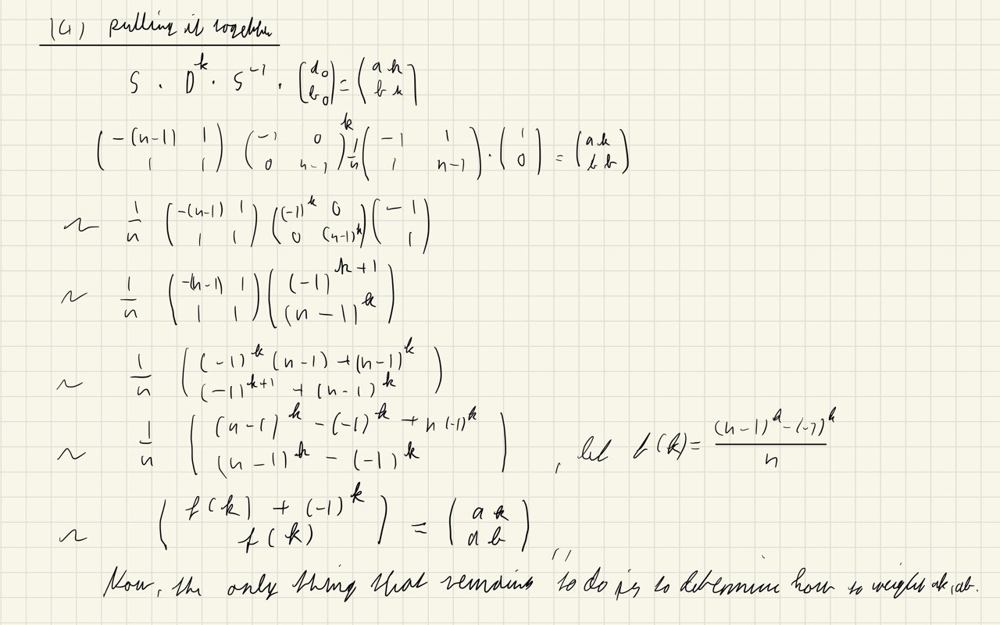 (4) Pulling it together
S · D^k · S^-1 · (d_0 b_0) = (a k b k)
(-(n-1) 1 1 1) (-1 0 0 n-1)^k 1/n (-1 1 1 n-1) · (1 0) = (a k b k)
~ 1/n (-(n-1) 1 1 1) ((-1)^k 0 0 (n-1)^k) (-1 1)
~ 1/n (-(n-1) 1 1 1) ((-1)^k+1 (n-1)^k)
~ 1/n ((-1)^k (n-1) + (n-1)^k (-1)^k+1 + (n-1)^k)
~ 1/n ((n-1)^k - (-1)^k + n(-1)^k (n-1)^k - (-1)^k) , let f(k) = (n-1)^k - (-1)^k / n
~ (f(k) + (-1)^k f(k)) = (a k a b)
Now, the only thing that remains to do is to determine how to weight ak, ab.